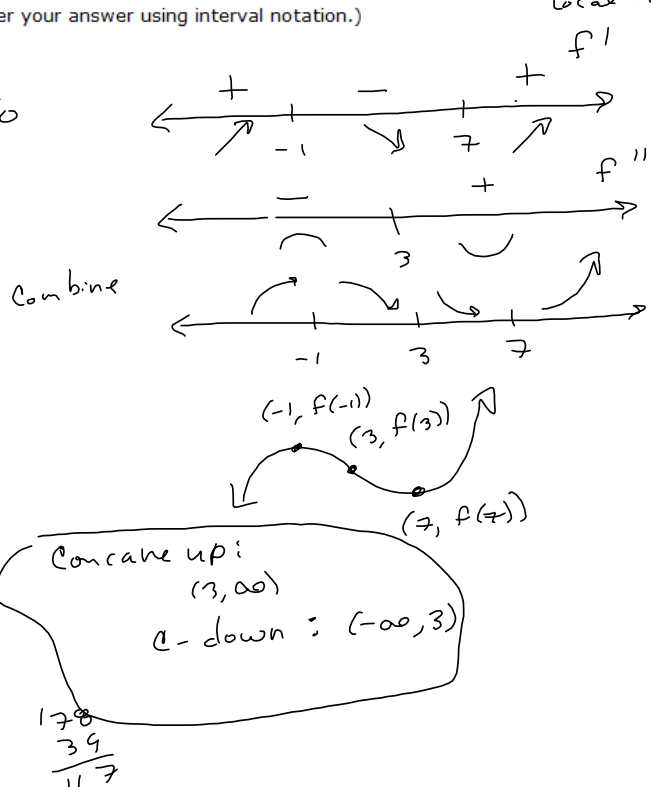 er your answer using interval notation.)
local
f'
+ − +
-1 7
f"
− +
3
Combine
-1 3 7
(-1, f(-1))
(3, f(3))
(7, f(7))
Concave up:
(3, ∞)
C-down: (-∞, 3)
178
39
117